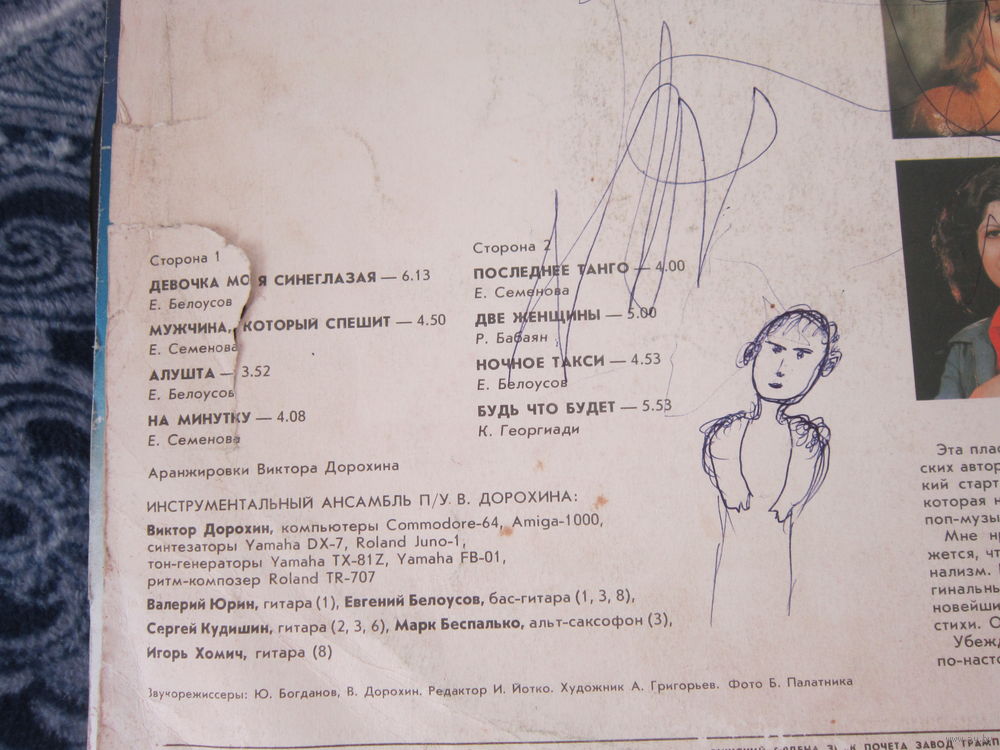 Сторона 1
ДЕВОЧКА МОЯ СИНЕГЛАЗАЯ — 6.13
Е. Белоусов
МУЖЧИНА, КОТОРЫЙ СПЕШИТ — 4.50
Е. Семенова
АЛУШТА — 3.52
Е. Белоусов
НА МИНУТКУ — 4.08
Е. Семенова
Сторона 2
ПОСЛЕДНЕЕ ТАНГО — 4.00
Е. Семенова
ДВЕ ЖЕНЩИНЫ — 5.00
Р. Бабаян
НОЧНОЕ ТАКСИ — 4.53
Е. Белоусов
БУДЬ ЧТО БУДЕТ — 5.53
К. Георгиади
Аранжировки Виктора Дорохина
ИНСТРУМЕНТАЛЬНЫЙ АНСАМБЛЬ П/У В. ДОРОХИНА:
Виктор Дорохин, компьютеры Commodore-64, Amiga-1000,
синтезаторы Yamaha DX-7, Roland Juno-1,
тон-генераторы Yamaha TX-81Z, Yamaha FB-01,
ритм-композер Roland TR-707
Валерий Юрин, гитара (1), Евгений Белоусов, бас-гитара (1, 3, 8),
Сергей Кудишин, гитара (2, 3, 6), Марк Беспалько, альт-саксофон (3),
Игорь Хомич, гитара (8)
Звукорежиссеры: Ю. Богданов, В. Дорохин. Редактор И. Йотко. Художник А. Григорьев. Фото Б. Палатника
Эта плас
ских автор
кий старт
которая н
поп-музы
Мне нр
жется, чт
нализм.
гинальны
новейши
стихи. О
Убежд
по-насто
ПОЧЕТА ЗАВОД ГРАМП